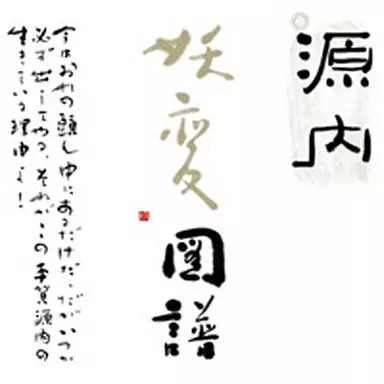 源内
妖変
図譜
今はおれの頭ん中にあるだけだ、だがいつか
必ず出してやる、それがこの平賀源内の
生きている理由よ！